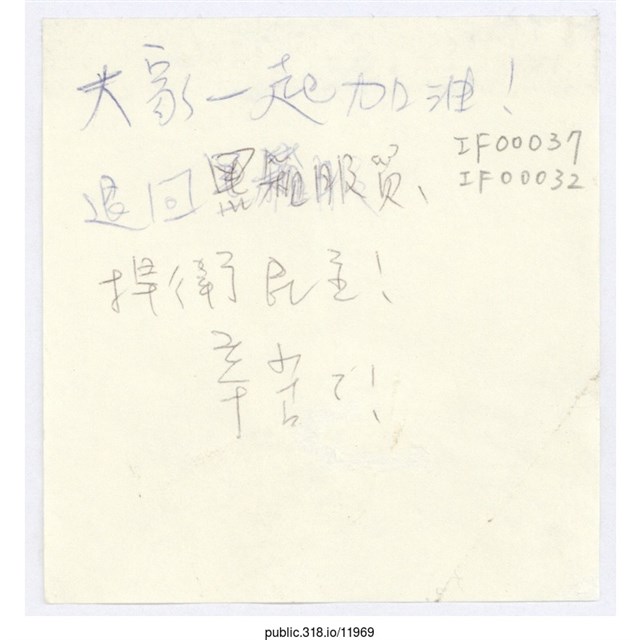 大家一起加油!
退回黑箱服貿、
IF00037
IF00032
捍衛民主!
辛苦了!
public.318.io/11969